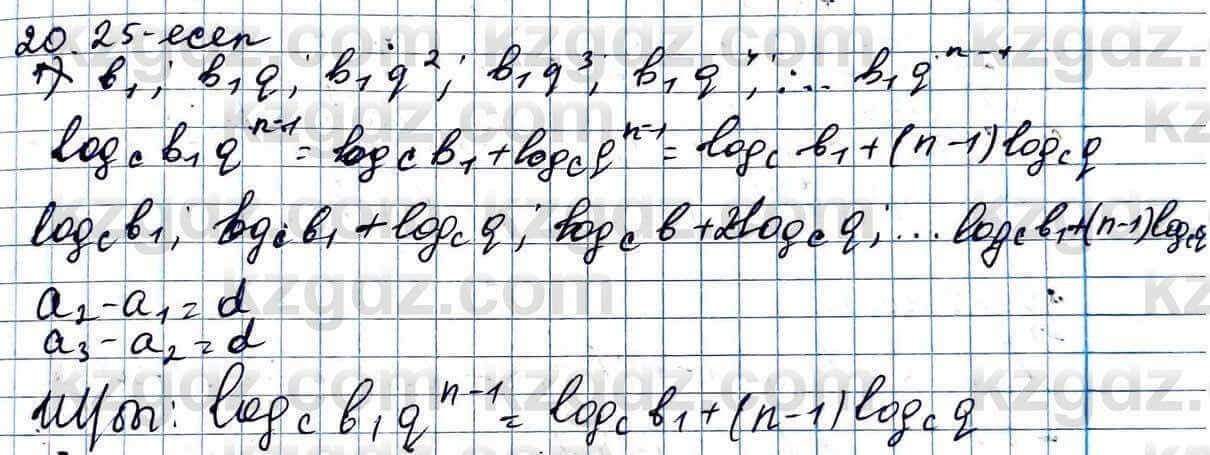 20.25-есеп
1) b₁; b₁q; b₁q²; b₁q³; b₁q⁴; ... b₁qⁿ⁻¹
log_c b₁qⁿ⁻¹ = log_c b₁ + log_c qⁿ⁻¹ = log_c b₁ + (n-1) log_c q
log_c b₁; log_c b₁ + log_c q; log_c b + 2log_c q; ... log_c b₁ + (n-1) log_c q
a₂ - a₁ = d
a₃ - a₂ = d
: log_c b₁qⁿ⁻¹ = log_c b₁ + (n-1) log_c q
kzgdz.com